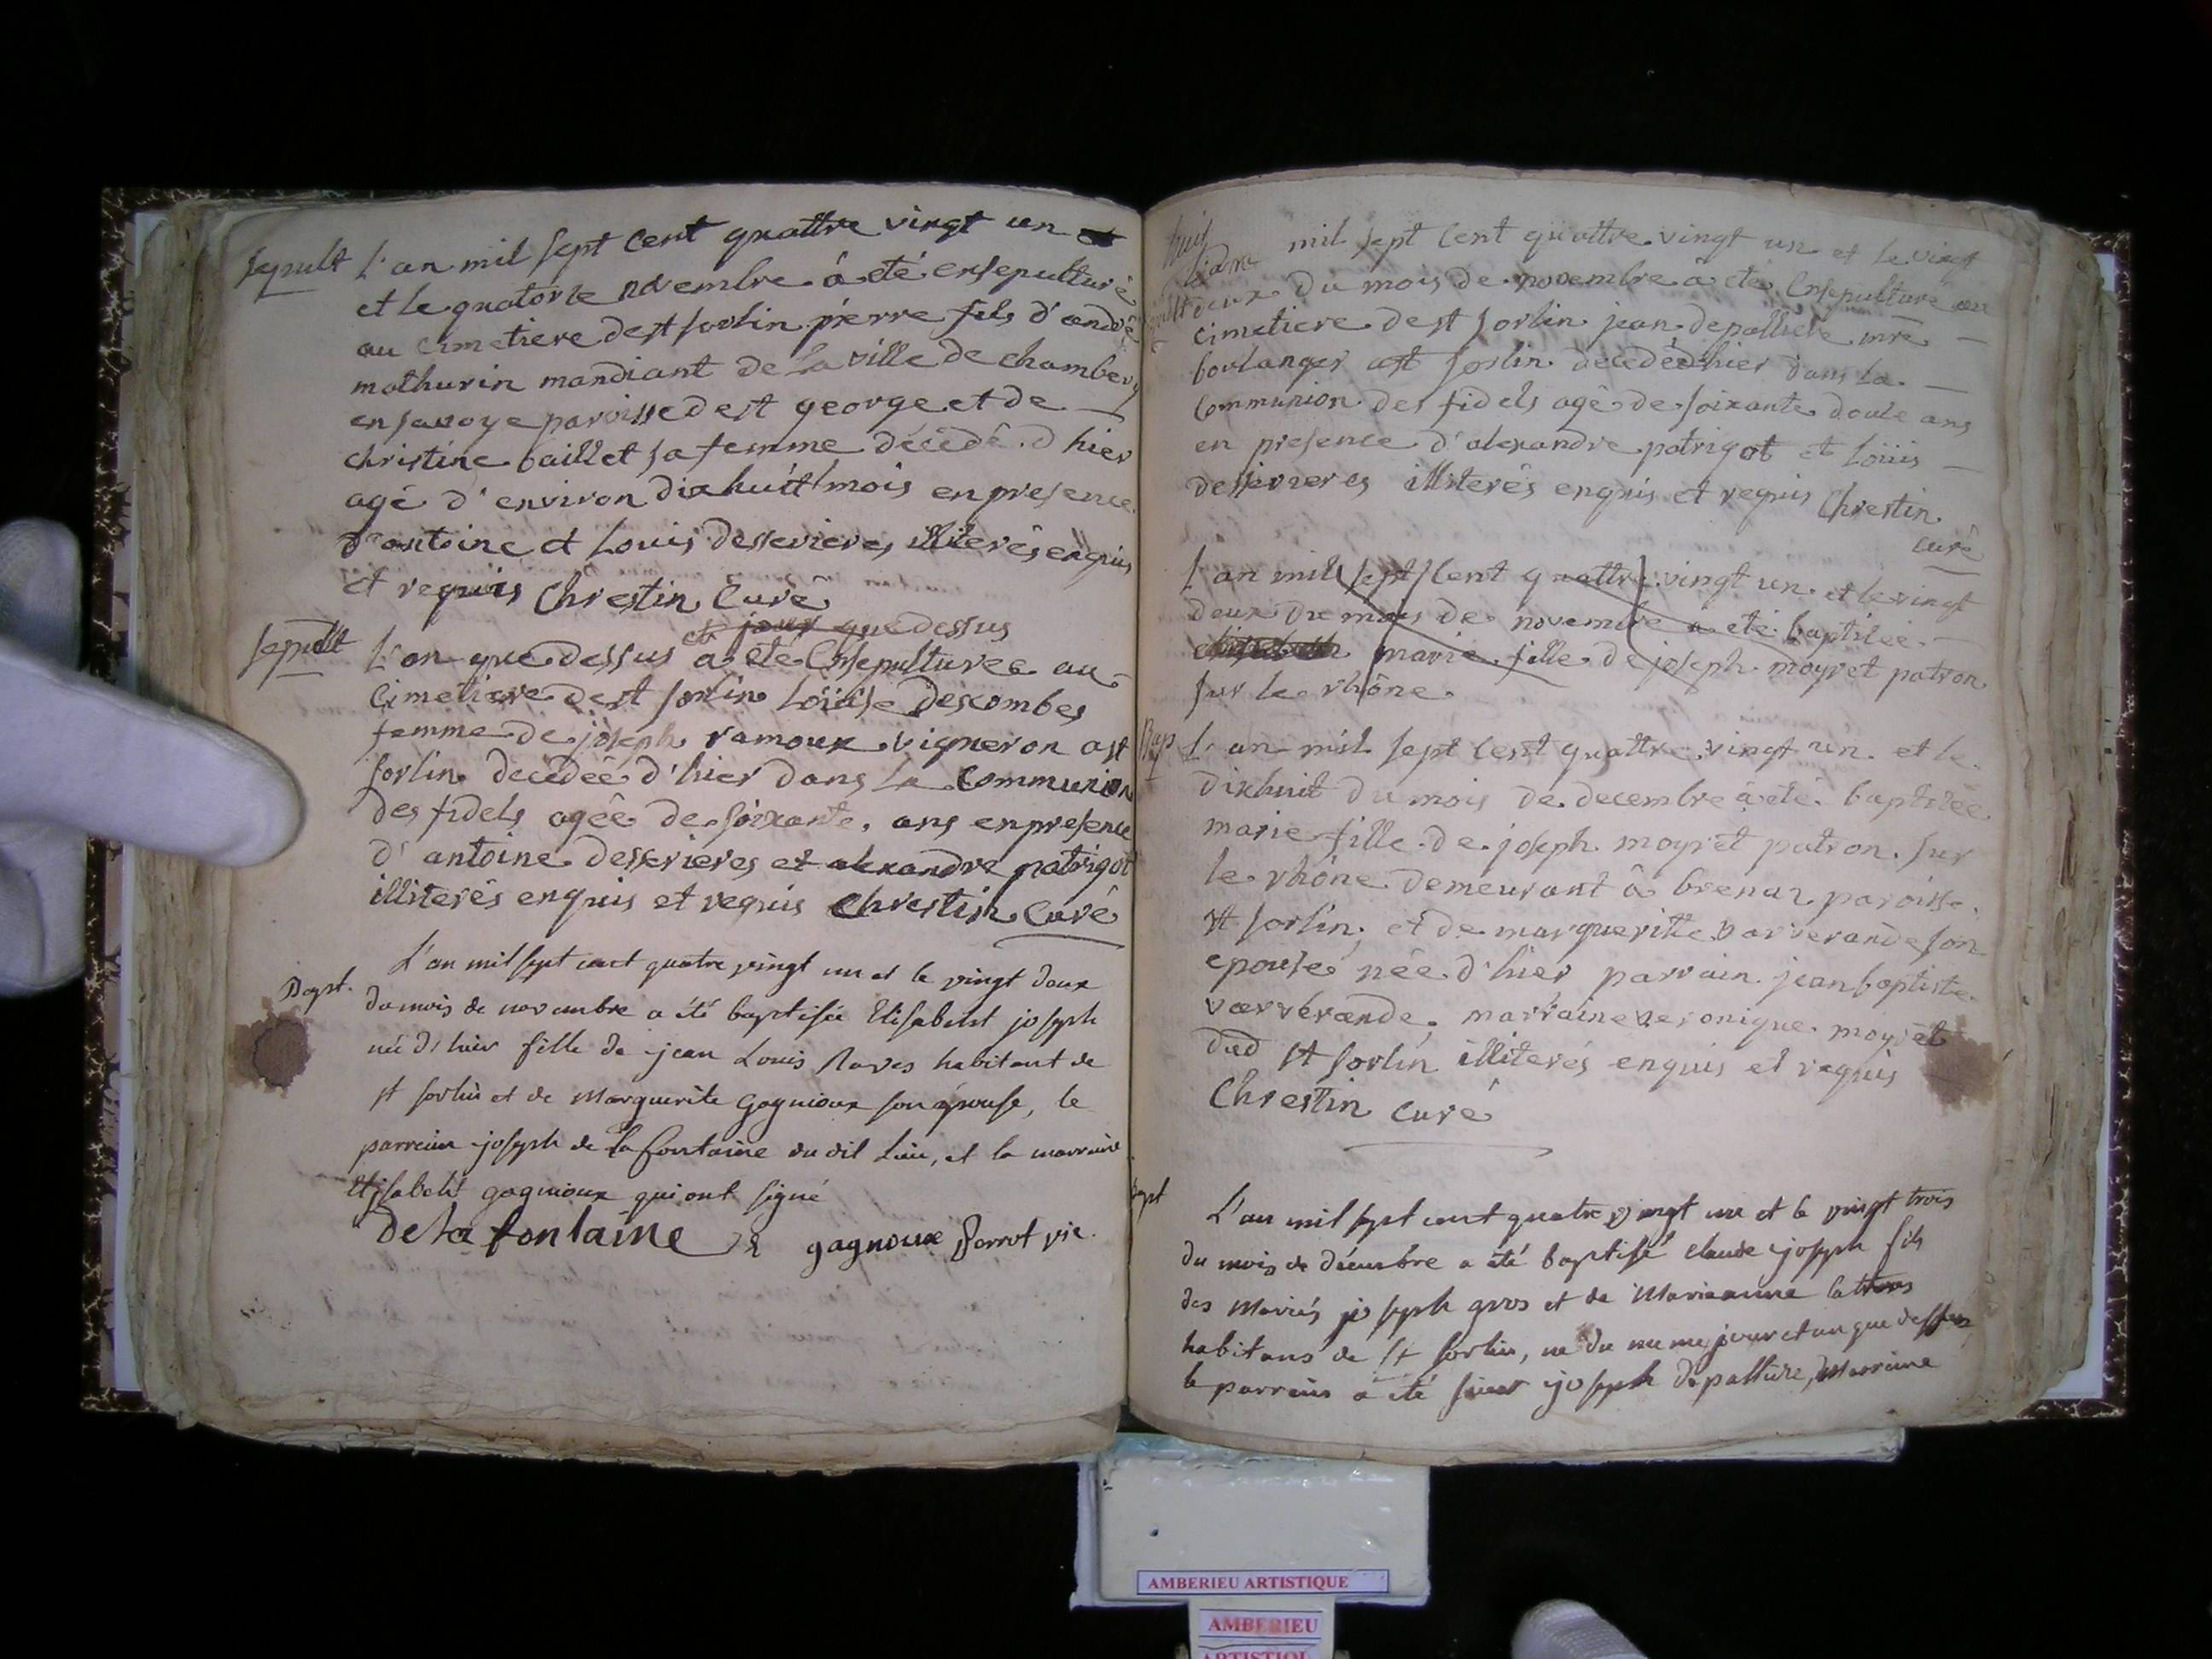 sepult L'an mil sept cent quattre vingt un
et le quatorze novembre à eté ensepulturé
au cimetiere de st sorlin pierre fils d'andré
mathurin mandiant de la ville de chambery
en savoye paroisse de st george et de
christine baillet sa femme décédé d'hier
agé d'environ dix huitt mois en presence
d'antoine et Louis desserieres illiterés enquis
et requis Chrestin Curé
et jour que dessus
sepult L'an que dessus a été Ensepulturée au
Cimetiere de st sorlin Loüise Descombes
femme de joseph ramoux vigneron a st
sorlin decedeé d'hier dans la Communion
des fidels agée de soixante ans en presence
d'antoine desserieres et alexandre patrigot
illiterés enquis et requis Chrestin Curé
L'an mil sept cent quatre vingt un et le vingt deux
Bapt. du mois de novembre a été baptisée Elisabeht joseph
née d'hier fille de jean Louis Raves habitant de
st sorlin et de Marguerite Gagnioux son épouse, le
parrein joseph de la fontaine du dit Lieu, et la marreine
Elisabeht gagnioux qui ont signé
De la fontaine gagnoux Perrot vic.
L'an mil sept cent quattre vingt un et le vingt
deux du mois de novembre à eté Ensepulturé au
cimetiere de st sorlin jean depalliere mre
boulanger a st sorlin decedé d'hier dans la
Communion des fidels agé de soixante douze ans
en presence d'alexandre patrigot et Loüis
desserieres illiterés enquis et requis Chrestin
curé
L'an mil sept Cent quattre vingt un et le vingt
deux du mois de novembre a eté baptisée
marie fille de joseph moyret patron
sur le rhône
Bap L'an mil sept Cent quattre vingt un et le
dixhuit du mois de decembre à eté baptisée
marie fille de joseph moyret patron sur
le rhône demeurant à brenaz paroisse
st sorlin, et de margueritte varverande son
epouse née d'hier parrain jean baptiste
varverande, marraine veronique moyret
dud st sorlin illiterés enquis et requis
Chrestin curé
Bapt L'an mil sept cent quatre vingt un et le vingt trois
du mois de décembre a été baptisé claude joseph fils
des Mariés joseph gros et de Marieanne
habitans de st sorlin, né du meme jour et an que dessus
le parrein a été sieur joseph depalliere, Marreine
AMBERIEU ARTISTIQUE
AMBERIEU
ARTISTIQUE